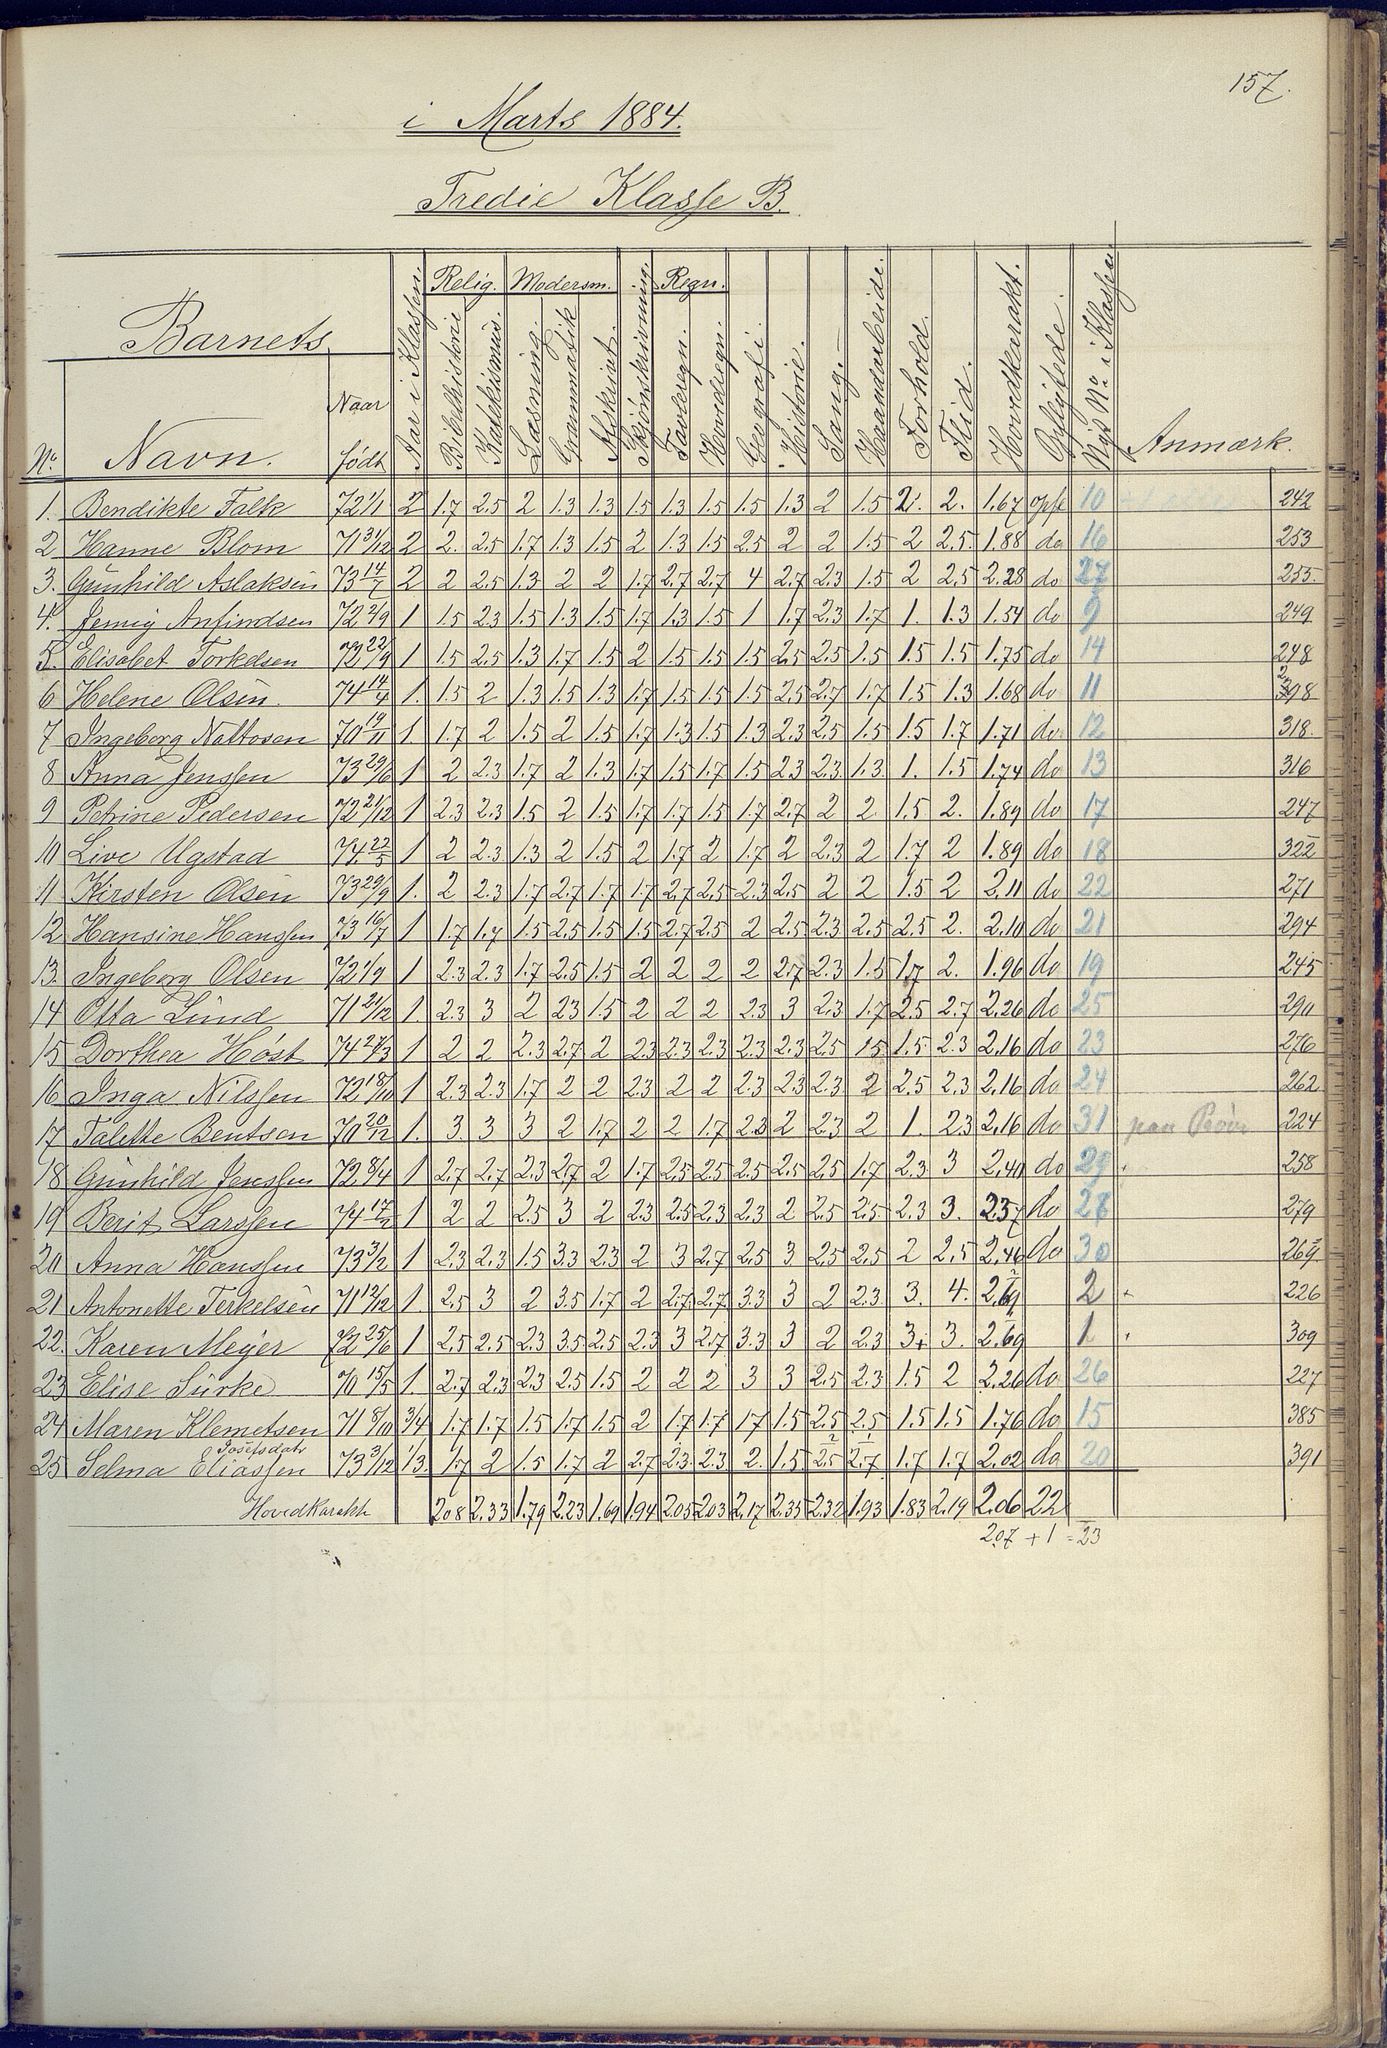 157.
i Marts 1884.
Tredie Klasse B.
Barnets
No. Navn. Naar født Aar i Klassen. Relig. Bibelhistorie Katekismus. Modersm. Læsning. Grammatik Afskrivt. Skjönskrivning. Regn. Tavleregn. Hovedregn. Geografi. Historie. Sang. Haandarbeide. Forhold. Flid. Hovedkarakt. Opflyttede. Nyt No. i Klassen Anmærk.
1. Bendikte Falk 72 1/1 2 1.7 2.5 2 1.3 1.3 1.5 1.3 1.5 1.5 1.3 2 1.5 2. 2. 1.67 opf 10 242
2 Hanne Blom 71 31/12 2 2. 2.5 1.7 1.3 1.5 2 1.3 1.5 2.5 2 2 1.5 2 2.5. 1.88 do 16 253
3. Gunhild Aslaksen 73 14/7 2 2 2.5 1.3 2 2 1.7 2.7 2.7 4 2.7 2.3 1.5 2 2.5 2.28 do 27 255.
4. Jenny Anfindsen 72 2/9 1 1.5 2.3 1.5 1.3 1.5 1.7 1.3 1.5 1 1.7 2.3 1.7 1. 1.3 1.54 do 9 249
5. Elisabet Torkelsen 72 22/9 1 1.5 2.5 1.3 1.7 1.5 2 1.5 1.5 1.5 2.5 2.5 1.5 1.5 1.5 1.75 do 14 248
6 Helene Olsen. 74 14/4 1. 1.5 2 1.3 1.5 1.3 1.7 1.5 1.5 1.5 2.5 2.7 1.7 1.5 1.3 1.68 do 11 298
7 Ingeborg Nottosen 70 19/11 1. 1.7 2 1.5 2 1.5 1.7 1.3 1.5 1.3 2.3 2.5 1.5 1.5 1.7 1.71 do 12 318.
8 Anna Jenssen 73 29/6 1 2 2.3 1.7 2 1.3 1.7 1.5 1.7 1.5 2.3 2.3 1.3 1. 1.5 1.74 do 13 316
9 Petrine Pedersen 72 21/12 1 2.3 2.3 1.5 2 1.5 1.7 1.7 1.5 1.7 2.7 2 2 1.5. 2. 1.89 do 17 247
10 Live Ugstad 74 22/5 1 2 2.3 1.3 2 1.5 2 1.7 2 1.7 2 2.3 2 1.7 2 1.89 do 18 322
11 Kirsten Olsen 73 29/9 1. 2 2.3 1.7 2.7 1.7 1.7 2.7 2.5 2.3 2.5 2 2 1.5 2 2.11 do 22 271
12 Hansine Hanssen 73 16/7 1 1.7 1.7 1.5 2.5 1.5 1.5 2.7 2.5 2 2.5 2.3 2.5 2.5 2. 2.10 do 21 294
13. Ingeborg Olsen 72 1/9 1 2.3 2.3 1.7 2.5 1.5 2 2 2 2 2.7 2.3 1.5 1.7 2. 1.96 do 19 245
14 Otta Lund 71 21/12 1. 2.3 3 2 2.3 1.5 2 2 2 2.3 3 2.3 1.7 2.5 2.7 2.26 do 25 290
15 Dorthea Höst 74 27/3 1 2 2 2.3 2.7 2 2.3 2.3 2.3 2.3 2.3 2.5 1.5 1.5. 2.3 2.16 do 23 276
16 Inga Nilssen 72 18/10 1 2.3 2.3 1.7 2 2 2.3 2 2 2.3 2.3 2.3 2 2.5 2.3 2.16 do 24 262
17 Talette Bentsen 70 20/12 1. 3. 3 3 2 1.7 2 2 1.7 2.3 2 2.3 2 1. 2.3 2.16 do 31 paa Pröve 224
18 Gunhild Jenssen 72 8/4 1 2.7 2.7 2.3 2.7 2 1.7 2.5 2.5 2.5 2.5 2.5 1.7 2.3 3 2.40 do 29 258
19 Berit Larssen 74 17/2 1 2 2 2.5 3 2 2.3 2.5 2.3 2.3 2 2.5 2.5 2.3 3. 2.37 do 28 279
20 Anna Hanssen 73 3/2 1 2.3 2.3 1.5 3.3 2.3 2 3 2.7 2.5 3 2.5 2.5 2 2.5 2.46 do 30 269
21 Antonette Terkelsen 71 12/12 1. 2.5 3 2 3.5 1.7 2 2.7 2.7 3.3 3 2 2.3 3. 4. 2.69 2 226
22. Karen Meyer 72 25/6 1 2.5 2.5 2.3 3.5 2.5 2.3 3 2.7 3.3 3 2 2.3 3+ 3. 2.69 1 309
23 Elise Surke 70 15/5 1. 2.7 2.3 2.3 2.5 1.5 2 2 2 3 3 2.5 2.3 1.5 2 2.26 do 26 227
24 Maren Klemetsen 71 8/10 3/4 1.7 1.7 1.5 1.7 1.5 2 1.7 1.7 1.7 1.5 2.5 2.5 1.5 1.5 1.76 do 15 385
25 Selma Josefsdatr Eliassen 73 3/12 1/3. 1.7 2 1.5 1.7 2 2.7 2.3 2.3 2. 1.5 2.5 2.7 1.7 1.7 2.02 do 20 391
Hovedkarakt 2.08 2.33 1.79 2.23 1.69 1.94 2.05 2.03 2.17 2.35 2.32 1.93 1.83 2.19 2.06 22
2.07 + 1 = 23